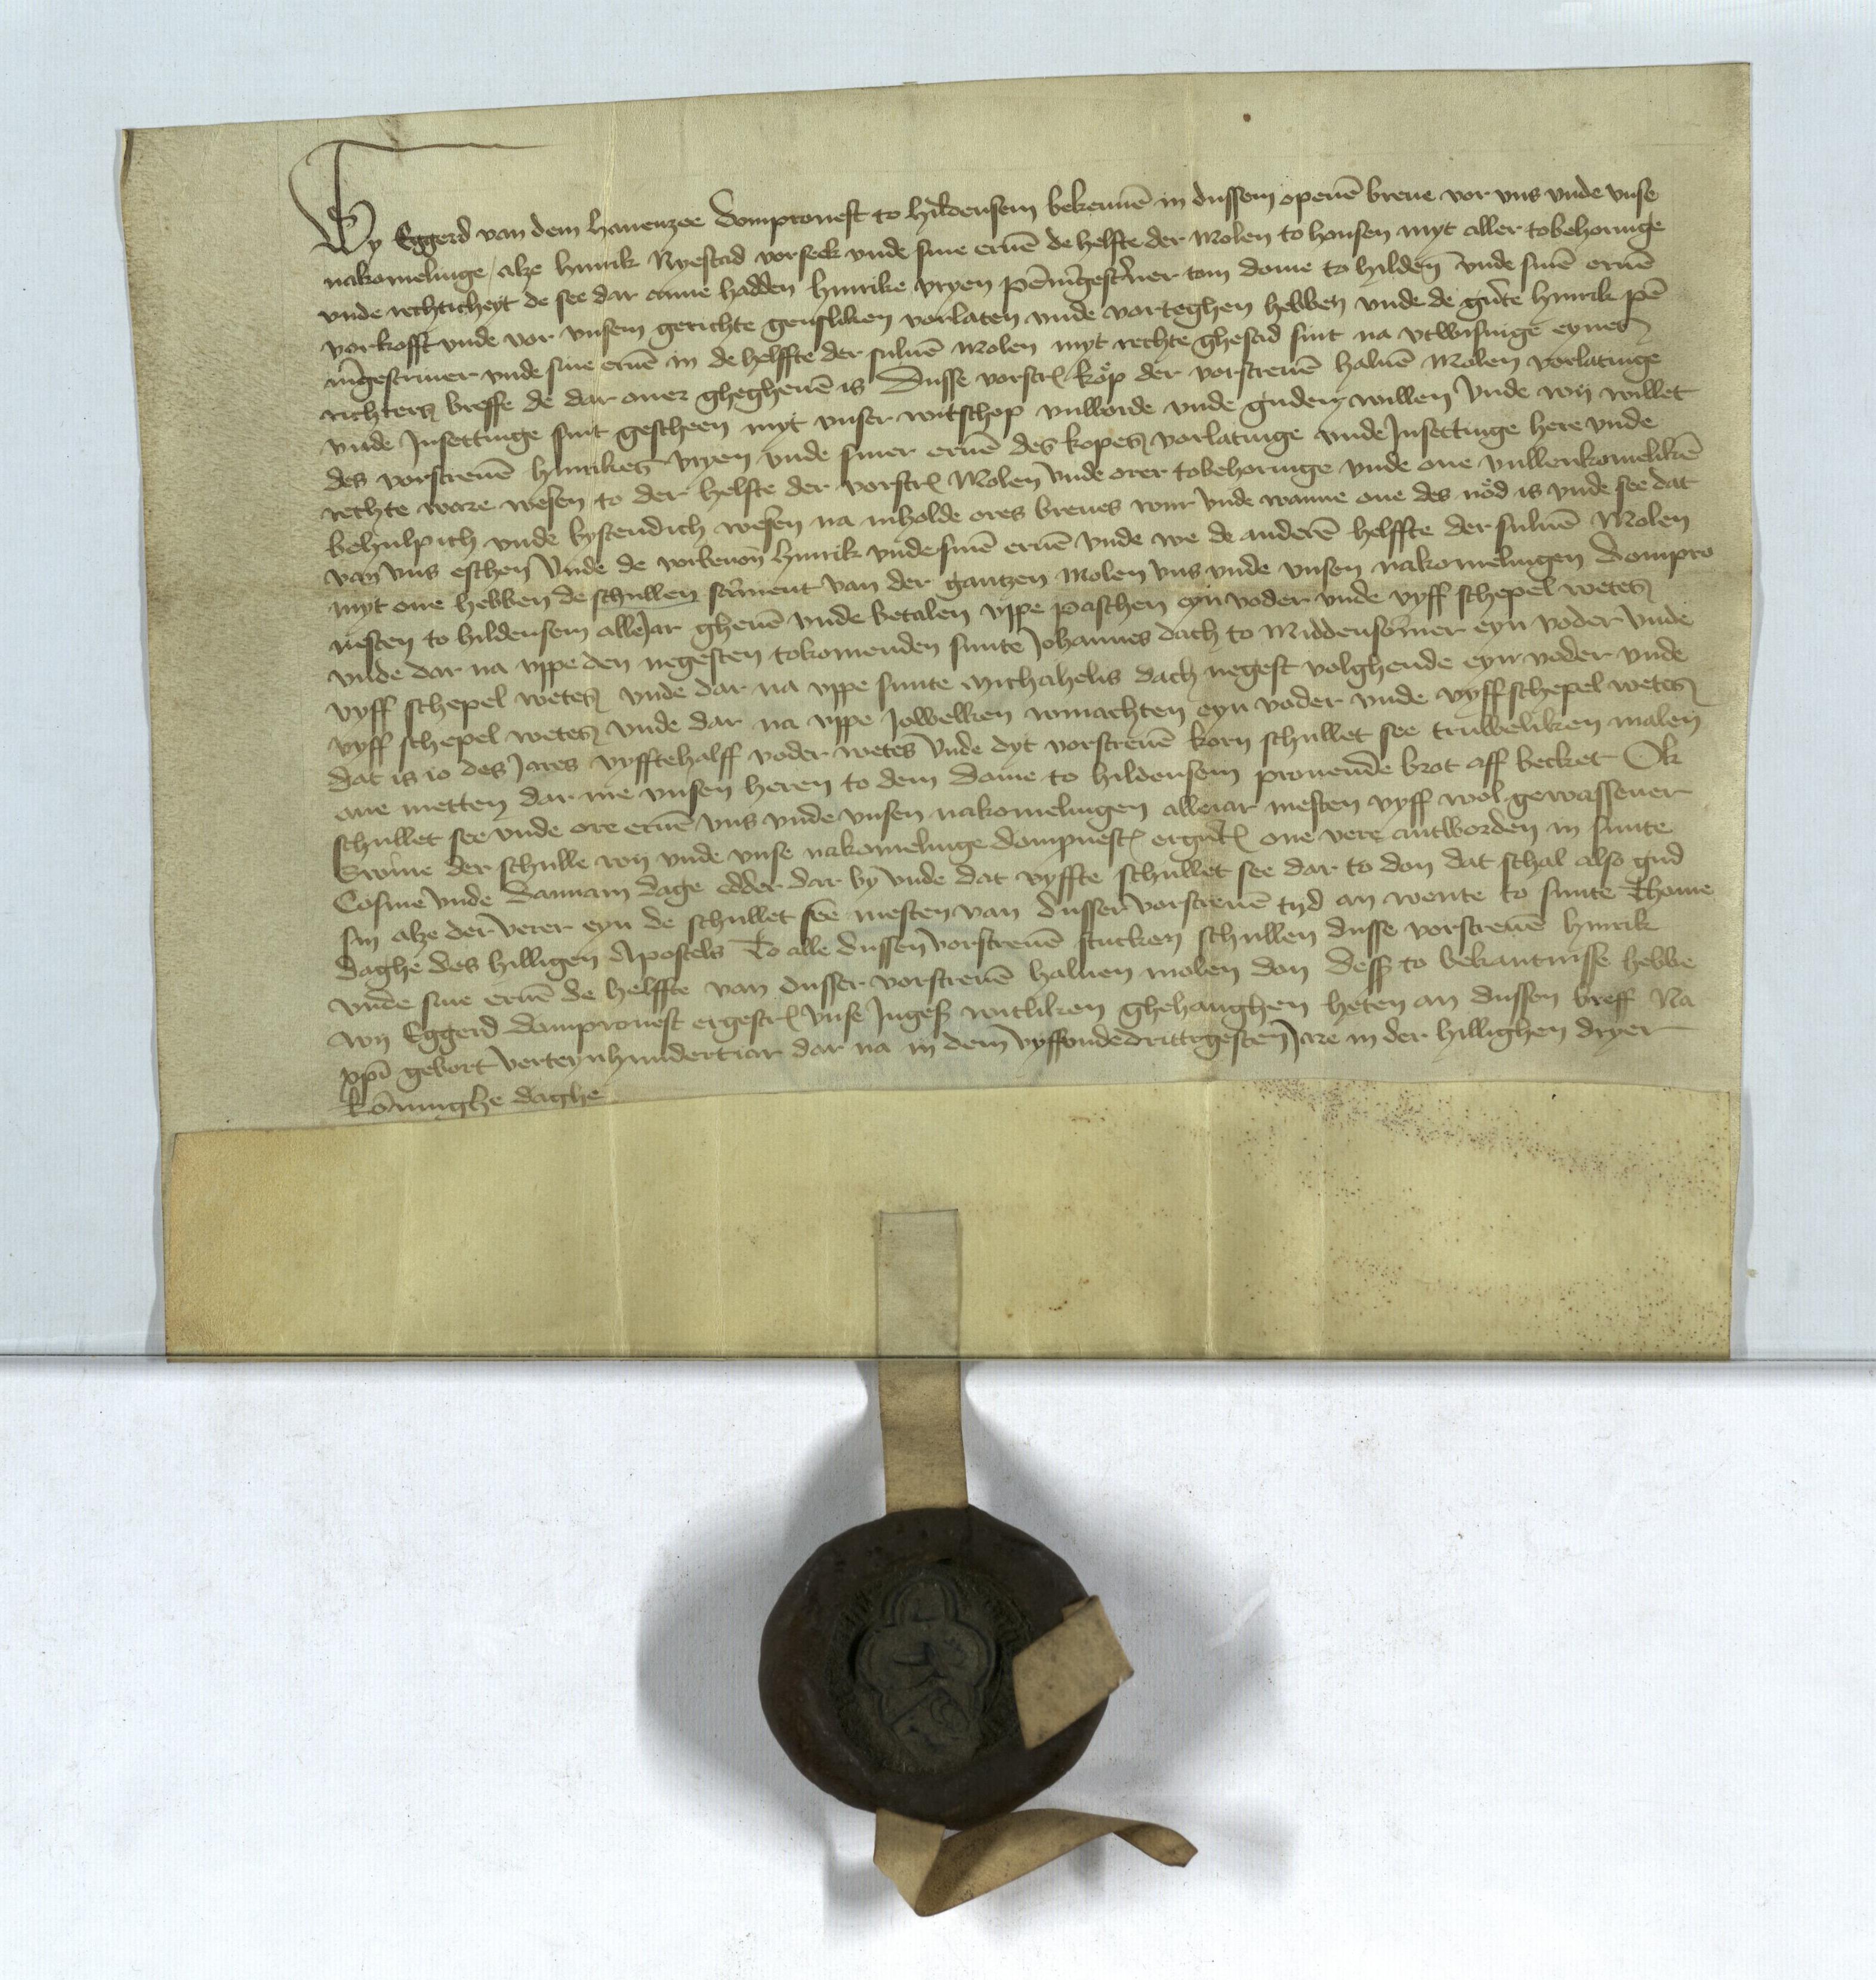 Wy Eggerd van dem Hanenzee domprouest to hildensem bekennē in dussem openē breue vor vns vnde vnse
nakomelinge / alze hinrik Nyestad vorseck vnde sine eruē de helfte der Molen to honsen myt aller tobehoringe
vnde rechticheyt de see dar anne hadden hinrike vryen pēni̅gescr̉uer tom dome to hilden̄ vnde sinē eruē
vorkofft vnde vor vnsem gerichte gensliken vorlaten vnde vorteghen hebben vnde de gūte hinrik pē
ni̅gescriuer vnde sine eruē in de helffte der suluē Molen myt rechte ghesad sint na vtwisinge eynes
richters breffe de dar ouer ghegheuē is Dusse vorscrē kop der vorscreuē haluē Molen vorlatinge
vnde Insettinge sint gescheen myt vnser witschop vullborde vnde guden willen Vnde wy willet
des vorscreuē hinrikes vryen vnde siner eruē des kopes vorlatinge vnde Insettinge here vnde
rechte ware wesen to der helfte der vorscrē Molen vnde orer tobehoringe vnde one vullenkomelikē
behulpich vnde bystendich wesen na inholde ores breues wur vnde wanne one des nod is vnde see dat
van vns eschen Vnde de hinrik vnde sinē eruē vnde we de anderē helffte der suluē Molen
myt one hebben de schullen van der gantzen Molen vns vnde vnsen nakomelingen dompro
uesten to hildensem alle Jar gheuē vnde betalen vppe paschen eyn voder vnde vyff schepel wetes
vnde dar na vppe den negesten tokomenden sunte Johannes dach to Middensōmer eyn voder vnde
vyff schepel wetes vnde dar na vppe sunte Michahelis dach negest volghende eyn voder vnde
vyff schepel wetes vnde dar na vppe Jowelken winachten eyn voder vnde vyff schepel wetes
dat is io des Jares vyfftehalff voder wetes Vnde dyt vorscreuē korn schullet see truweliken malen
one metten dar me vnsen heren to dem dome to hildensem prouende brot aff becket Ok
schullet see vnde ore eruē vns vnde vnsen nakomelingen alleiar mesten vyff wol gewassener
Swine der schulle wy vnde vnse nakomelinge dompuestē ergūtē one vere antworden in sunte
Cosme vnde damiani dage edder dar by vnde dat vyffte schullet see dar to don dat schal also gud
sin alze der verer eyn de schullet see mesten van dusser vorscreuē tyd an wente to sunte Thome
daghe des hilligen Apostels To alle dussen vorscreuē stucken schullen dusse vorscreuē hinrik
vnde sine eruē de helffte van dusser vorscreuē haluen molen don Dess to bekantnisse hebbe
wy Eggerd domprouest ergescrē vnse Ingesē witliken ghehanghen heten an dussen breff Na
xpī gebort verteynhundert iar dar na in dem vyffvndedrittigesten Jare in der hillighen dryer
Kōninghe daghe